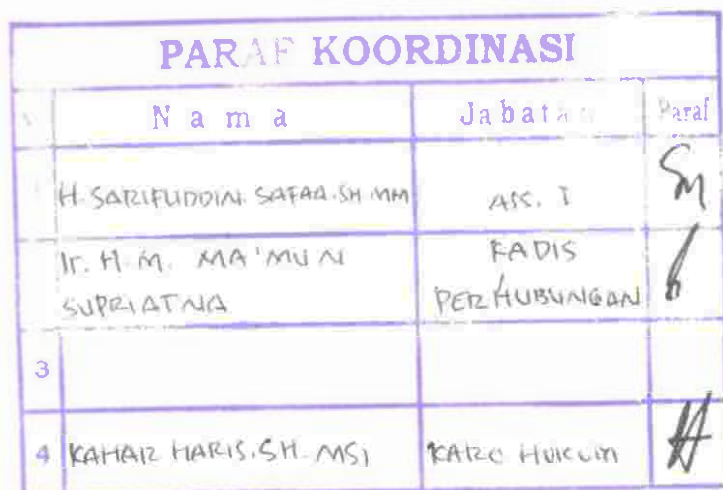 PARAF KOORDINASI
N a m a Jabatan Paraf
H. SARIFUDDIN. SAFAA. SH. MM ASS. I
Ir. H. M. MA'MUN SUPRIATNA KADIS PERHUBUNGAN
3
4 KAHAR HARIS. SH. MSI KARO HUKUM